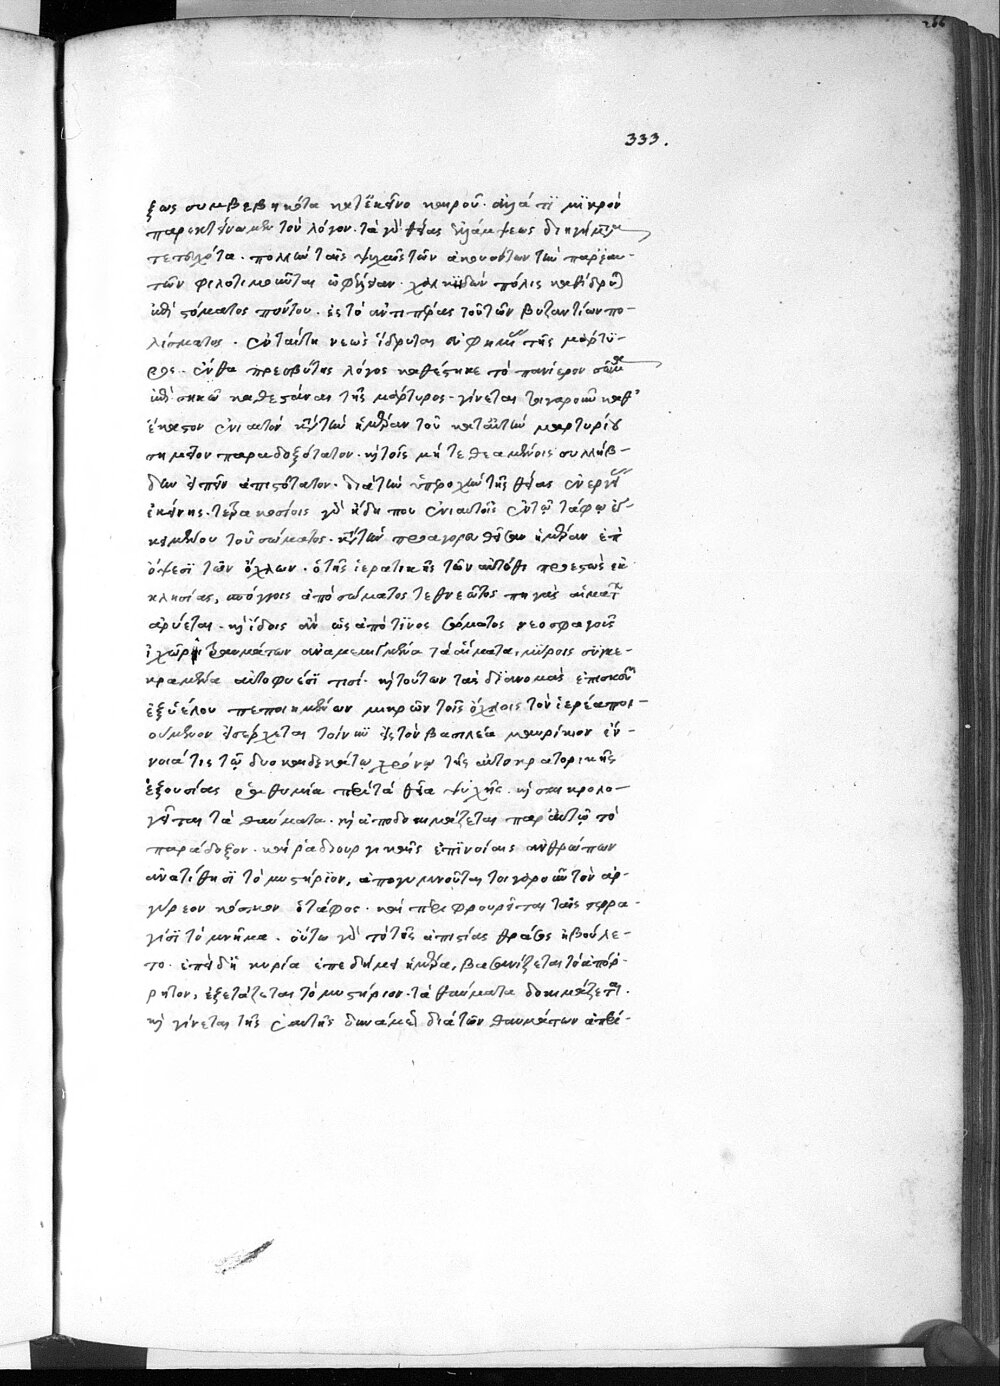 266
333.
ξως συμβεβηκότα κατ' ἐκεῖνο καιροῦ. ἀλλά τι μικρόν
παρεκτείνωμεν τὸν λόγον. τὰ γὰρ θείας ἐλλάμψεως διηγήματα
τετυχηκότα. πολλῶν ταῖς ψυχαῖς τῶν ἀκουόντων τὴν παρ' ἑαυ-
τῶν φιλοτιμοῦνται ὠφέλειαν. χαλκηδὼν πόλις καθίδρυται
ἐπὶ στόματος πόντου. ἐς τὸ ἀντιπέρας τοῦ τῶν βυζαντίων πο-
λίσματος. ἐν ταύτη νεὼς ἵδρυται εὐφημίας τῆς μάρτυ-
ρος. ἔνθα πρεσβύτης λόγος καθέστηκε τὸ πανίερον σῶμα
ἐπὶ σηκῶ καθεστάναι τῆς μάρτυρος. γίνεται τοιγαροῦν καθ'
ἕκαστον ἐνιαυτὸν κατὰ τὴν ἡμέραν τοῦ κατ' αὐτὴν μαρτυρίου
σημεῖον παραδοξότατον. καὶ τοῖς μὴ τεθεαμένοις συλλήβ-
δην εἰπεῖν ἀπιστότατον. διὰ τὴν ὑπεροχὴν τῆς θείας ἐνεργείας
ἐκείνης. τετρακοσίοις γὰρ ἤδη που ἐνιαυτοῖς ἐν τῶ τάφω ἐγ-
κειμένου τοῦ σώματος. κατὰ τὴν προαγορευθεῖσαν ἡμέραν ἐπ'
ὄψεσι τῶν ὄχλων. ὁ τῆς ἱερατικῆς τῶν αὐτόθι προεστὼς ἐκ
κλησίας, σπόγγοις ἀπὸ σώματος τεθνεῶτος πηγὰς αἱμάτων
ἀρύεται. καὶ ἴδοις ἂν ὡς ἀπό τινος σώματος νεοσφαγοῦς
ἰχώρων τραυμάτων ἀναμεμιγμένα τὰ αἵματα, μύροις συγκε-
κραμένα αὐτοφυέσι τισί. καὶ τούτων τὰς διανομὰς ἐπισκοπεῖ
ἐξ ὑέλου πεποιημένων μικρῶν τοῖς ὄχλοις τὸν ἱερέα ποι-
ούμενον εἰσέρχεται τοίνυν εἰς τὸν βασιλέα μαυρίκιον ἔν-
νοιά τις τῶ δυοκαιδεκάτω χρόνω τῆς αὐτοκρατορικῆς
ἐξουσίας ῥαθυμία περὶ τὰ θεῖα ψυχῆς. καὶ σμικρολο-
γεῖται τὰ θαύματα. καὶ ἀποδοκιμάζεται παρ' αὐτῶ τὸ
παράδοξον. καὶ ῥαδιουργικαῖς ἐπινοίαις ἀνθρώπων
ἀνατίθησι τὸ μυστήριον, ἀπογυμνοῦται τοιγαροῦν τὸν ἀρ-
γύρεον κόσμον ὁ τάφος. καὶ περιφρουρεῖται ταῖς σφρα-
γῖσι τὸ μνῆμα. οὕτω γὰρ τὸ τῆς ἀπιστίας θράσος ἠβούλε-
το. ἐπειδὴ κυρία ἐπεδήμει ἡμέρα, βασανίζεται τὸ ἀπόρ-
ρητον, ἐξετάζεται τὸ μυστήριον. τὰ θαύματα δοκιμάζεται.
καὶ γίνεται τῆς ἑαυτῆς δυνάμεως διὰ τῶν θαυμάτων ἀπερί-